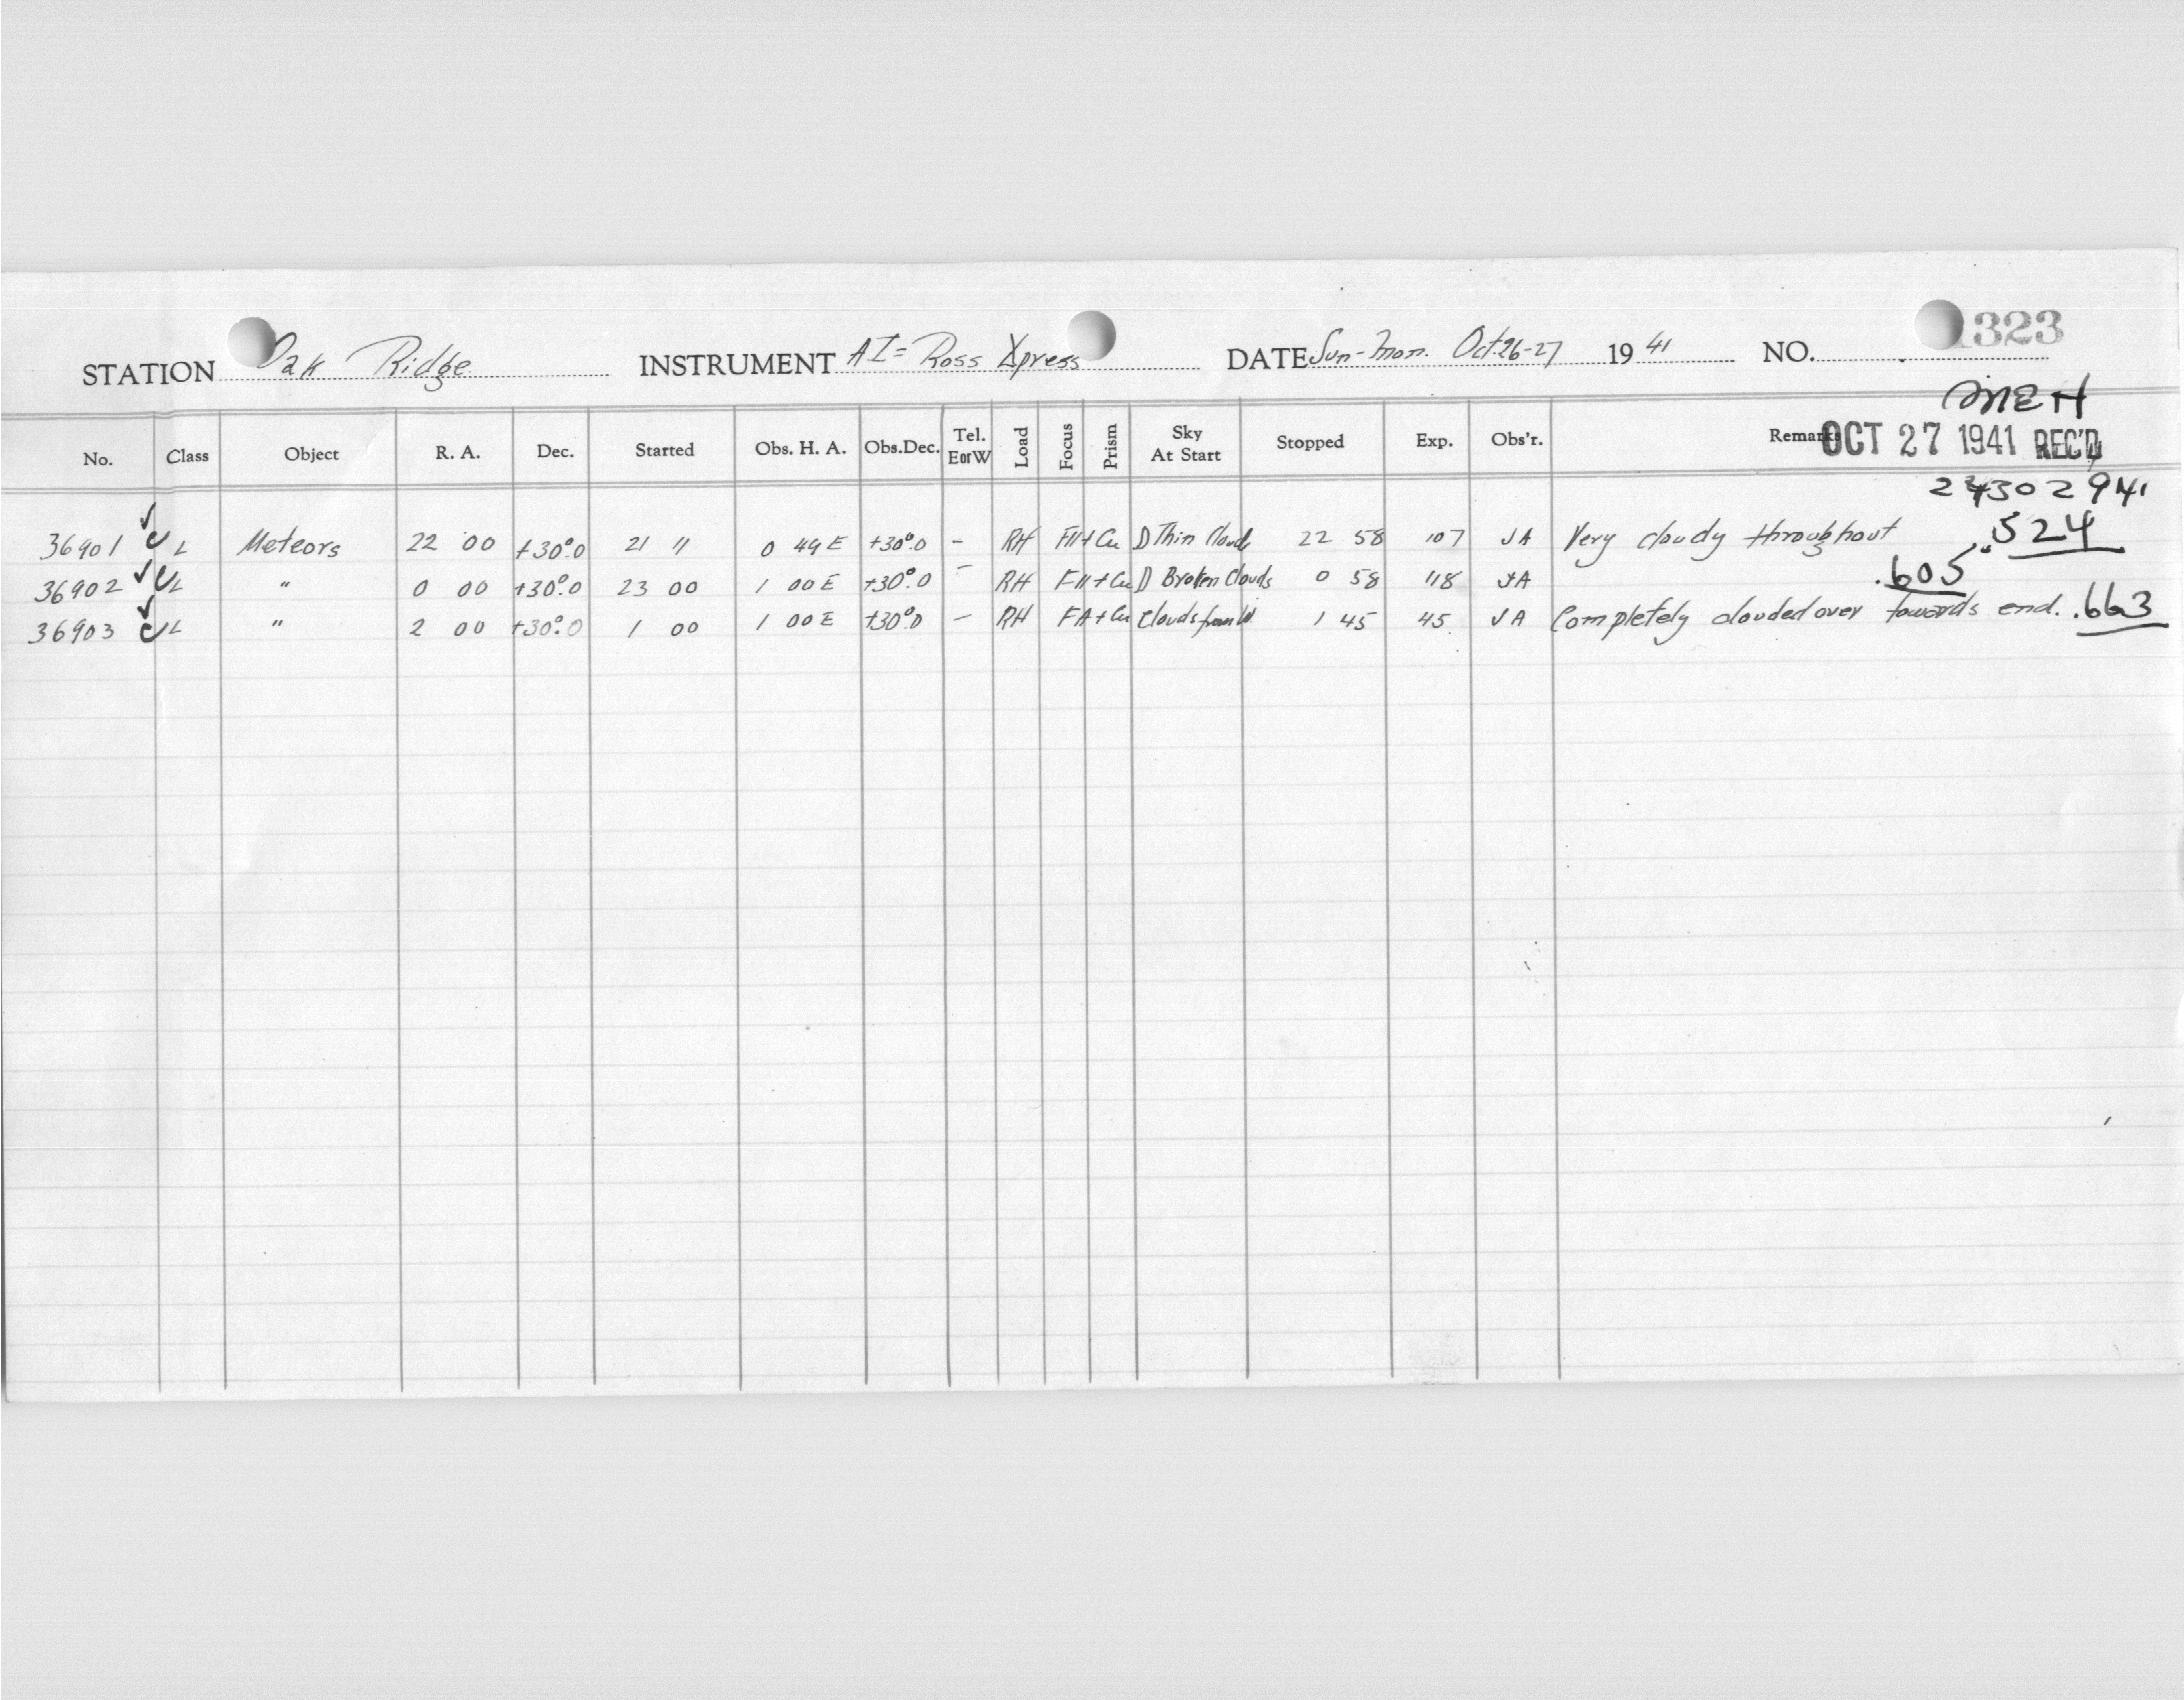 STATION Oak Ridge INSTRUMENT AI = Ross Xpress DATE Sun-Mon. Oct. 26-27 19 41 NO. 1323
MEH
No. Class Object R. A. Dec. Started Obs. H. A. Obs. Dec. Tel. E or W Load Focus Prism Sky At Start Stopped Exp. Obs'r. Remarks
OCT 27 1941 REC'D
2430294
36901 ✓ C L Meteors 22 00 +30°.0 21 11 0 49 E +30°.0 - RH FII+Cu D Thin Clouds 22 58 107 JA Very cloudy throughout .524
36902 ✓ C L " 0 00 +30°.0 23 00 1 00 E +30°.0 - RH FII+Cu D Broken Clouds 0 58 118 JA .605
36903 ✓ C L " 2 00 +30°.0 1 00 1 00 E +30°.0 - RH FA+Cu Clouds from W 1 45 45 JA Completely clouded over towards end. .663